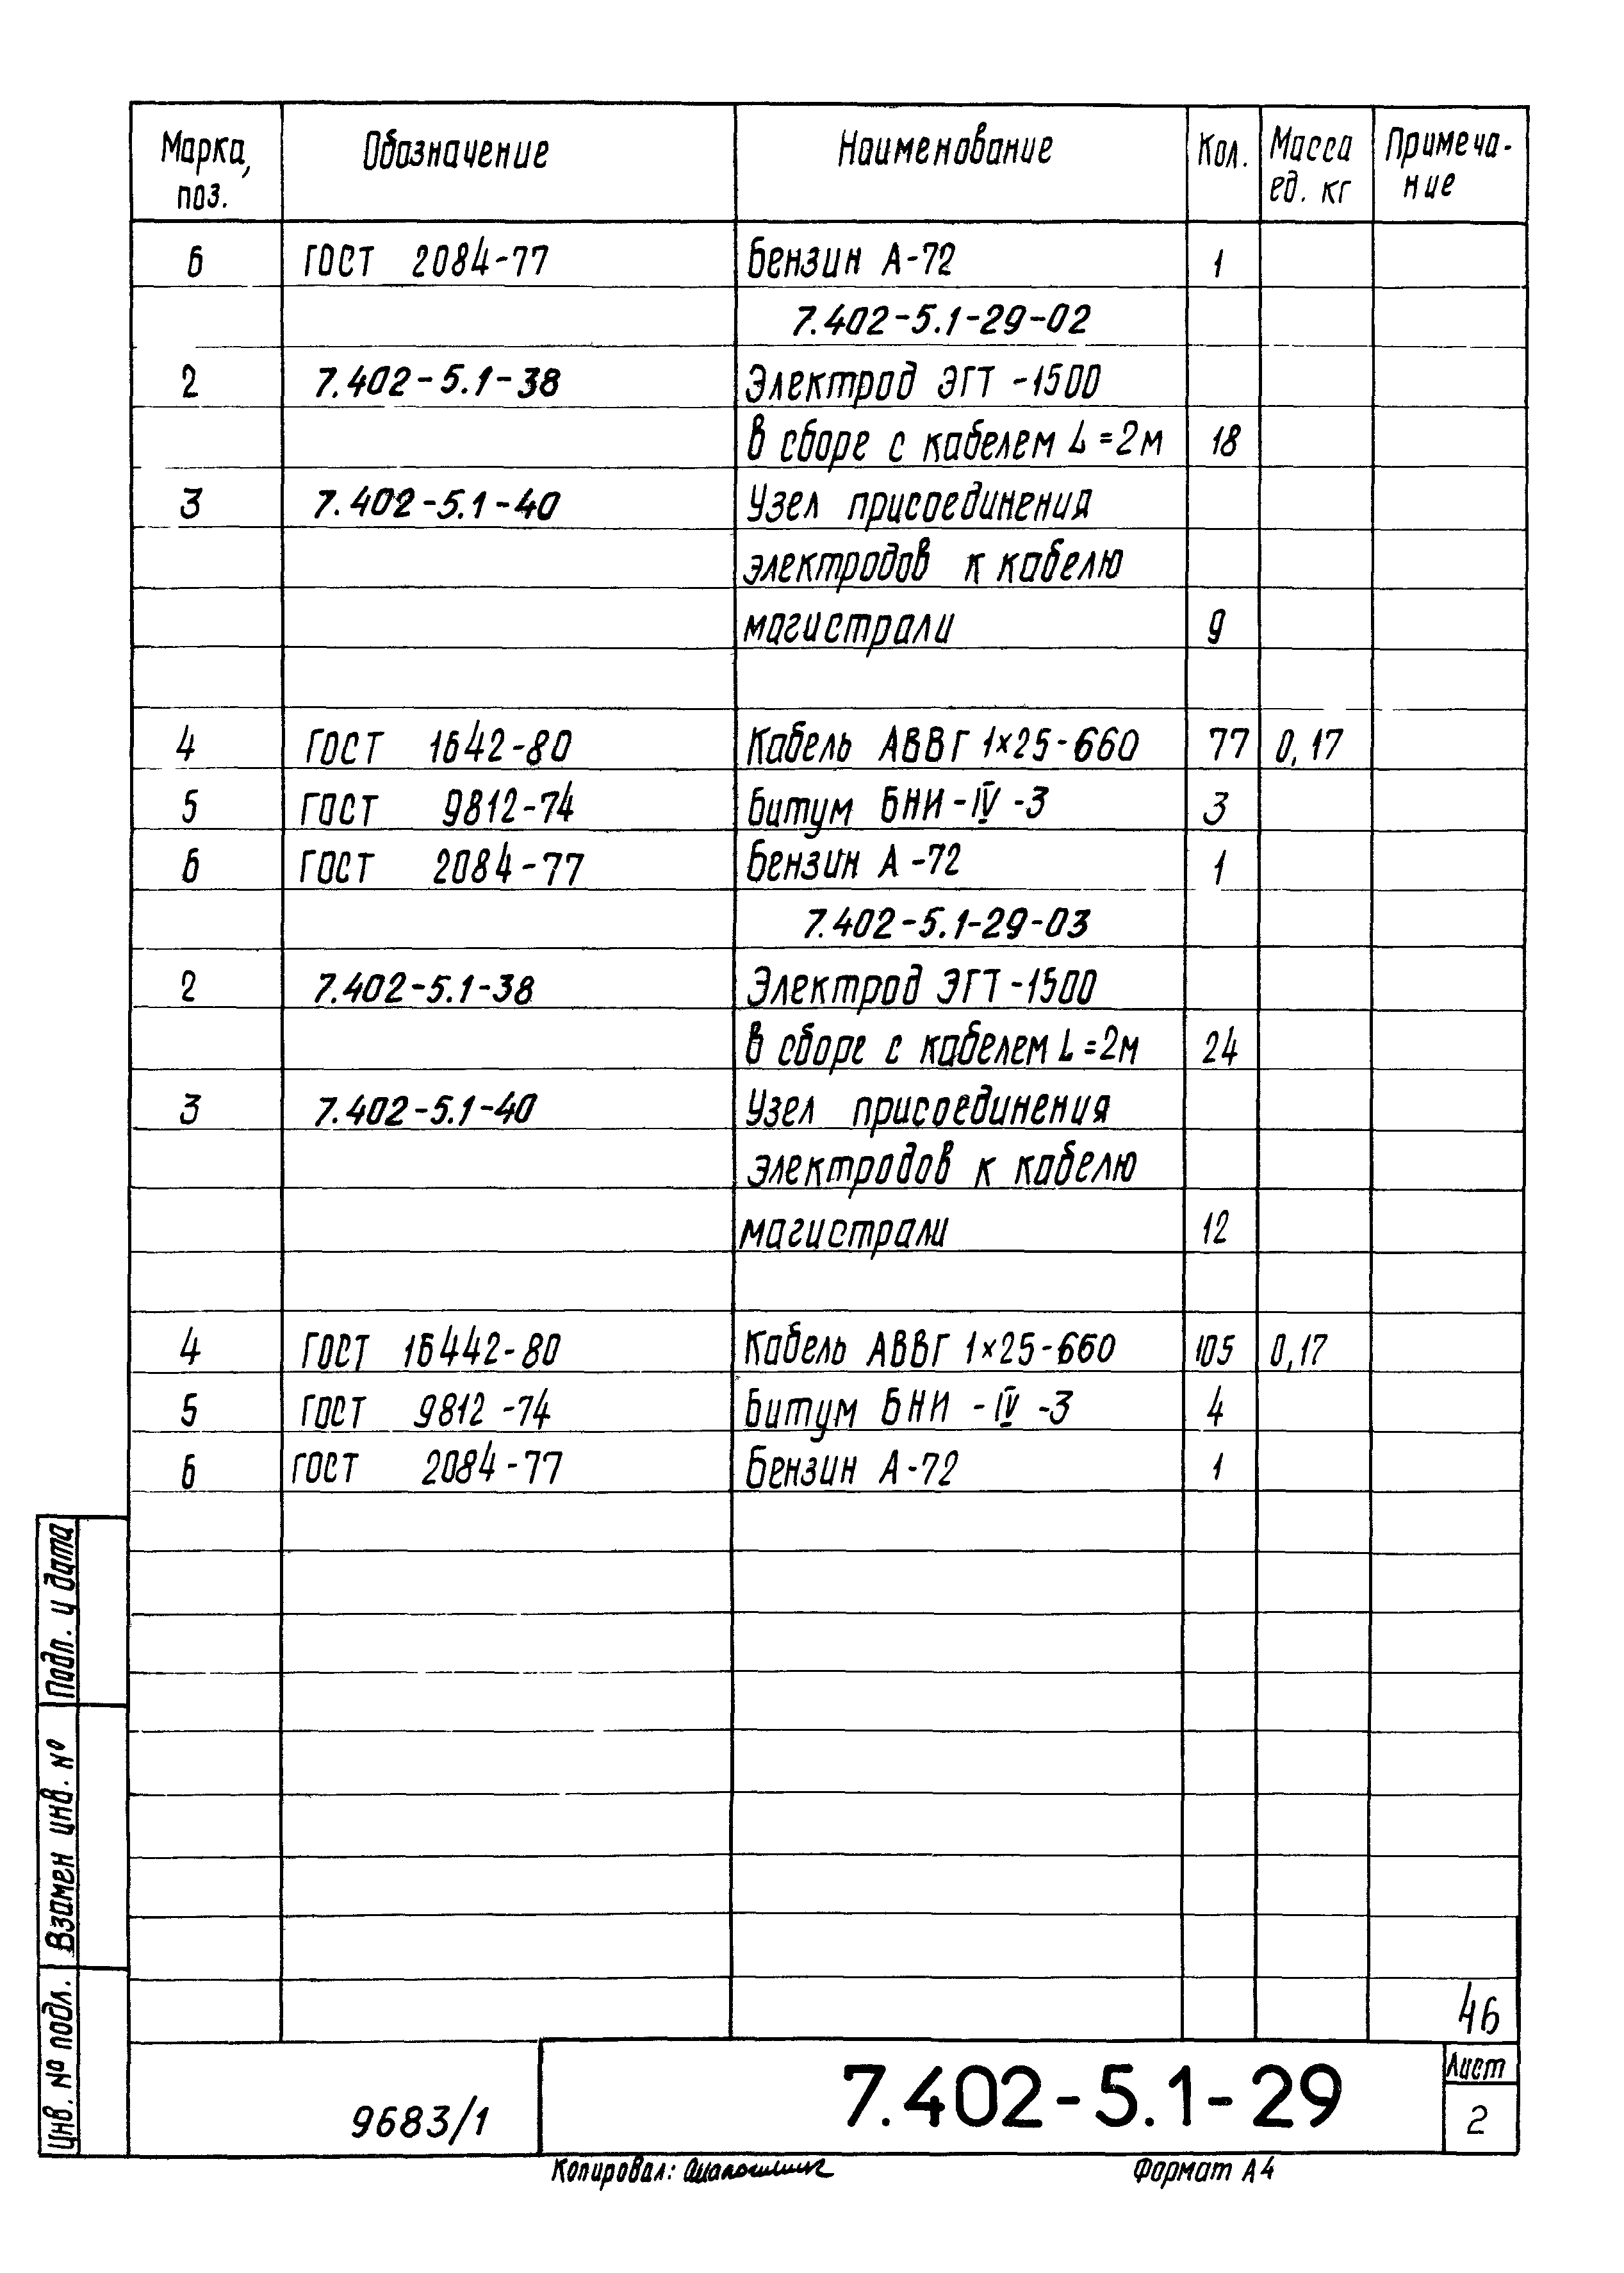 Марка, Обозначение Наименование Кол. Масса Примеча-
поз. ед. кг ние
6 ГОСТ 2084-77 Бензин А-72 1
7.402-5.1-29-02
2 7.402-5.1-38 Электрод ЭГТ-1500
в сборе с кабелем L=2м 18
3 7.402-5.1-40 Узел присоединения
электродов к кабелю
магистрали 9
4 ГОСТ 1642-80 Кабель АВВГ 1×25-660 77 0,17
5 ГОСТ 9812-74 Битум БНИ-IV-3 3
6 ГОСТ 2084-77 Бензин А-72 1
7.402-5.1-29-03
2 7.402-5.1-38 Электрод ЭГТ-1500
в сборе с кабелем L=2м 24
3 7.402-5.1-40 Узел присоединения
электродов к кабелю
магистрали 12
4 ГОСТ 16442-80 Кабель АВВГ 1×25-660 105 0,17
5 ГОСТ 9812-74 Битум БНИ-IV-3 4
6 ГОСТ 2084-77 Бензин А-72 1
Подп. и дата
Взамен инв. №
Инв. № подл.
46
9683/1 7.402-5.1-29 Лист
2
Копировал: Формат А4